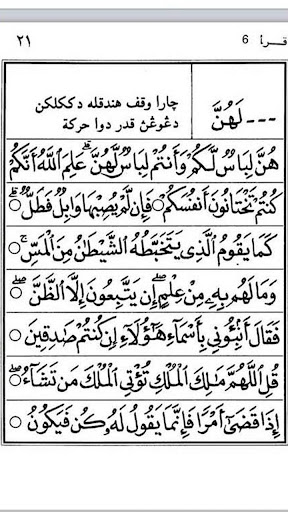 اقرأ 6 ٢١
--- لَهُنَّ
چارا وقف هندقله دككلكن
دڠوڠن قدر دوا حركة
هُنَّ لِبَاسٌ لَّكُمْ وَأَنتُمْ لِبَاسٌ لَّهُنَّ ۗ عَلِمَ اللَّهُ أَنَّكُمْ
كُنتُمْ تَخْتَانُونَ أَنفُسَكُمْ ○ فَإِن لَّمْ يُصِبْهَا وَابِلٌ فَطَلٌّ ۗ ○
كَمَا يَقُومُ الَّذِي يَتَخَبَّطُهُ الشَّيْطَـٰنُ مِنَ الْمَسِّ ۚ ○
وَمَا لَهُم بِهِۦ مِنْ عِلْمٍ ۖ إِن يَتَّبِعُونَ إِلَّا الظَّنَّ ۖ ○
فَقَالَ أَنۢبِـُٔونِي بِأَسْمَآءِ هَـٰٓؤُلَآءِ إِن كُنتُمْ صَـٰدِقِينَ ○
قُلِ اللَّهُمَّ مَـٰلِكَ الْمُلْكِ تُؤْتِي الْمُلْكَ مَن تَشَآءُ ۖ ○
إِذَا قَضَىٰٓ أَمْرًا فَإِنَّمَا يَقُولُ لَهُۥ كُن فَيَكُونُ ○